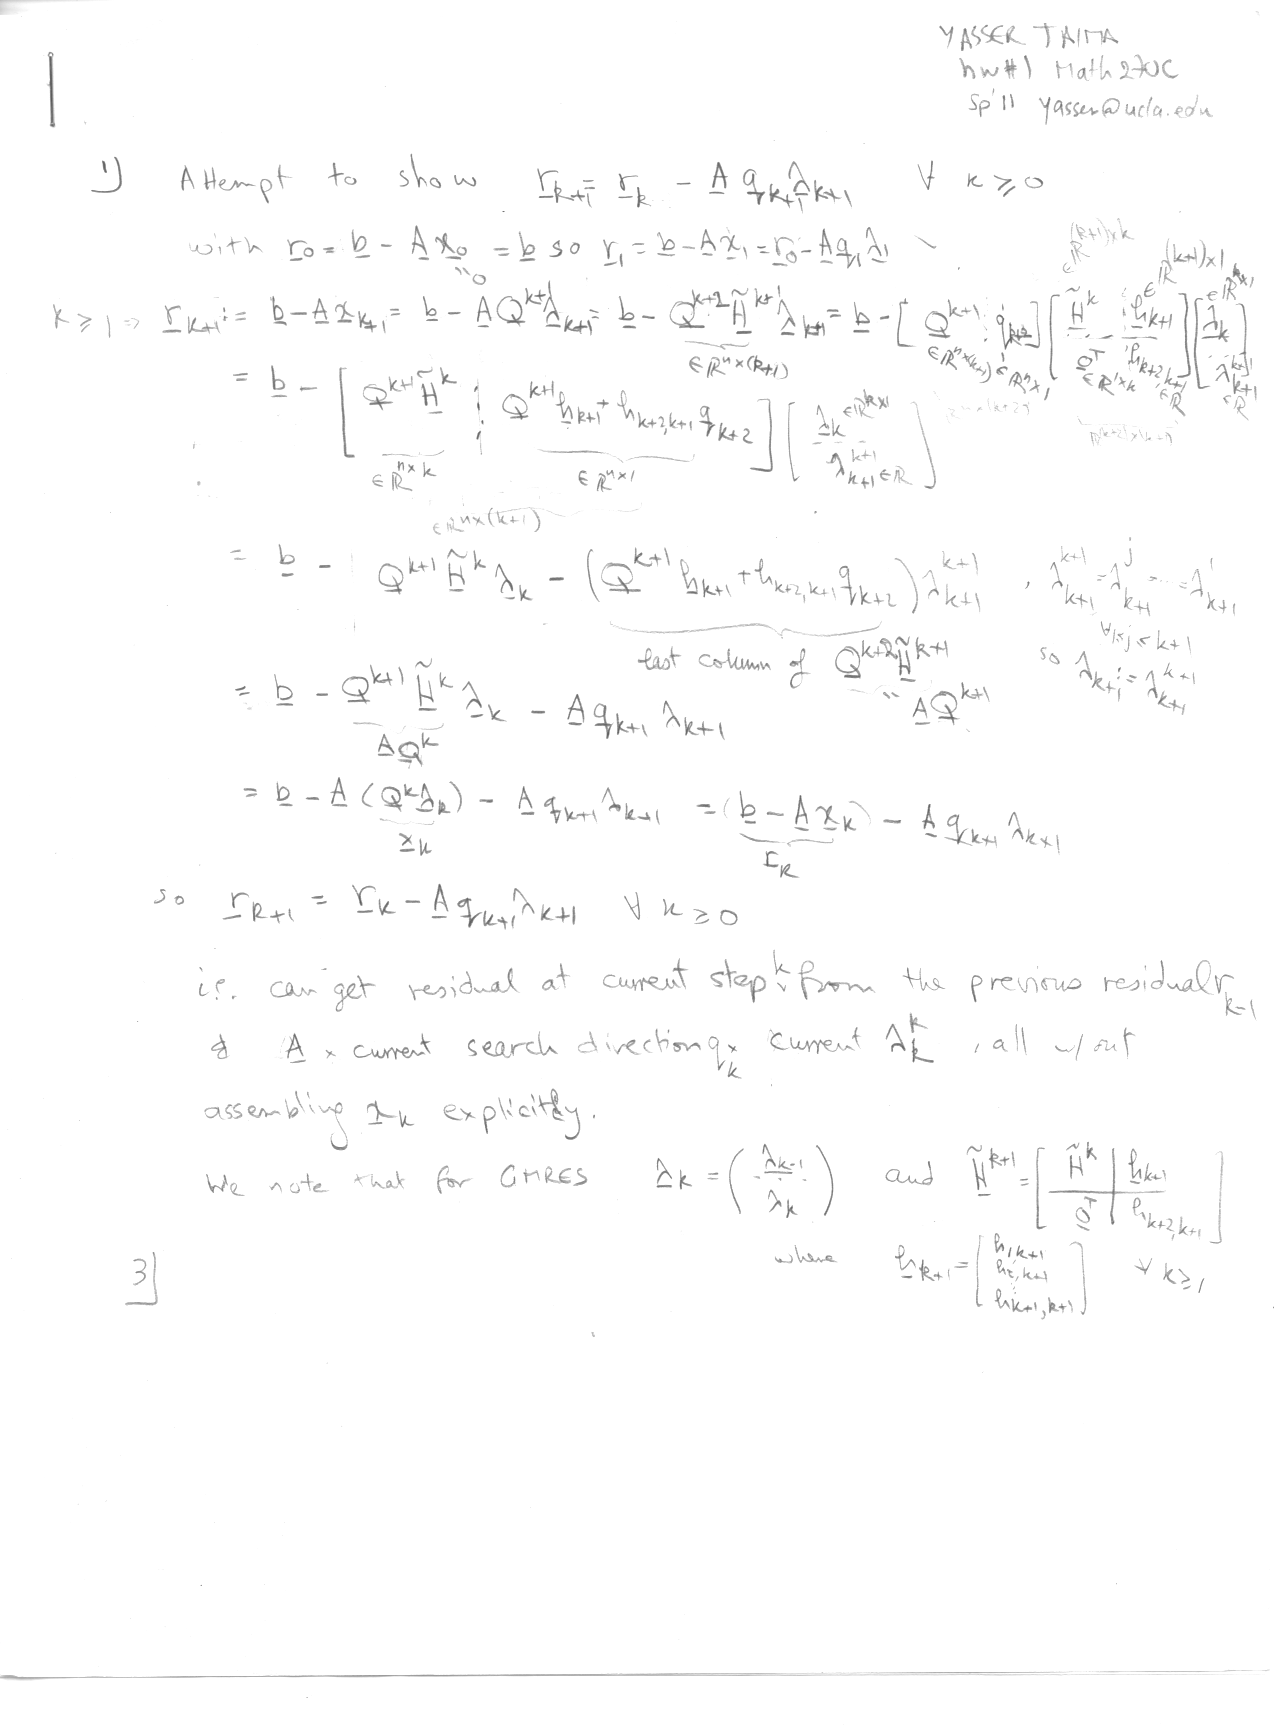 YASSER TAIMA
hw#1 Math 270C
Sp'11 yasser@ucla.edu
1) Attempt to show r_{k+1} = r_k - A q_{k+1} λ_{k+1} ∀ k ≥ 0
with r_0 = b - A x_0 = b so r_1 = b - A x_1 = r_0 - A q_1 λ_1
"0
k ≥ 1 ⇒ r_{k+1} := b - A x_{k+1} = b - A Q^{k+1} λ_{k+1} = b - Q^{k+2} H̃^{k+1} λ_{k+1} = b - [ Q^{k+1} ¦ q_{k+2} ] [ H̃^k ¦ h_{k+1} ; 0^T ¦ h_{k+2,k+1} ] [ λ_k ; λ_{k+1}^{k+1} ]
∈ℝ^{(k+1)×k} ∈ℝ^{(k+1)×1} ∈ℝ^{k×1}
∈ℝ^{n×(k+1)} ∈ℝ^{n×(k+1)} ∈ℝ^{n×1} ∈ℝ^{1×k} ∈ℝ ∈ℝ
= b - [ Q^{k+1} H̃^k ¦ Q^{k+1} h_{k+1} + h_{k+2,k+1} q_{k+2} ] [ λ_k ∈ℝ^{k×1} ; λ_{k+1}^{k+1} ∈ℝ ]
∈ℝ^{n×k} ∈ℝ^{n×1}
∈ℝ^{n×(k+1)}
= b - Q^{k+1} H̃^k λ_k - ( Q^{k+1} h_{k+1} + h_{k+2,k+1} q_{k+2} ) λ_{k+1}^{k+1} , λ_{k+1}^{k+1} = λ_{k+1}^j = ... = λ_{k+1}^1
∀ 1≤j≤k+1
last column of Q^{k+2} H̃^{k+1} so λ_{k+1} := λ_{k+1}^{k+1}
" A Q^{k+1}
= b - Q^{k+1} H̃^k λ_k - A q_{k+1} λ_{k+1}
A Q^k
= b - A (Q^k λ_k) - A q_{k+1} λ_{k+1} = (b - A x_k) - A q_{k+1} λ_{k+1}
x_k r_k
so r_{k+1} = r_k - A q_{k+1} λ_{k+1} ∀ k ≥ 0
i.e. can get residual at current step k from the previous residual r_{k-1}
& A × current search direction q_k × current λ_k^k , all w/out
assembling x_k explicitly.
We note that for GMRES λ_k = ( λ_{k-1} ; λ_k ) and H̃^{k+1} = [ H̃^k | h_{k+1} ; 0^T | h_{k+2,k+1} ]
where h_{k+1} = [ h_{1,k+1} ; h_{2,k+1} ; ⋮ ; h_{k+1,k+1} ] ∀ k ≥ 1
3